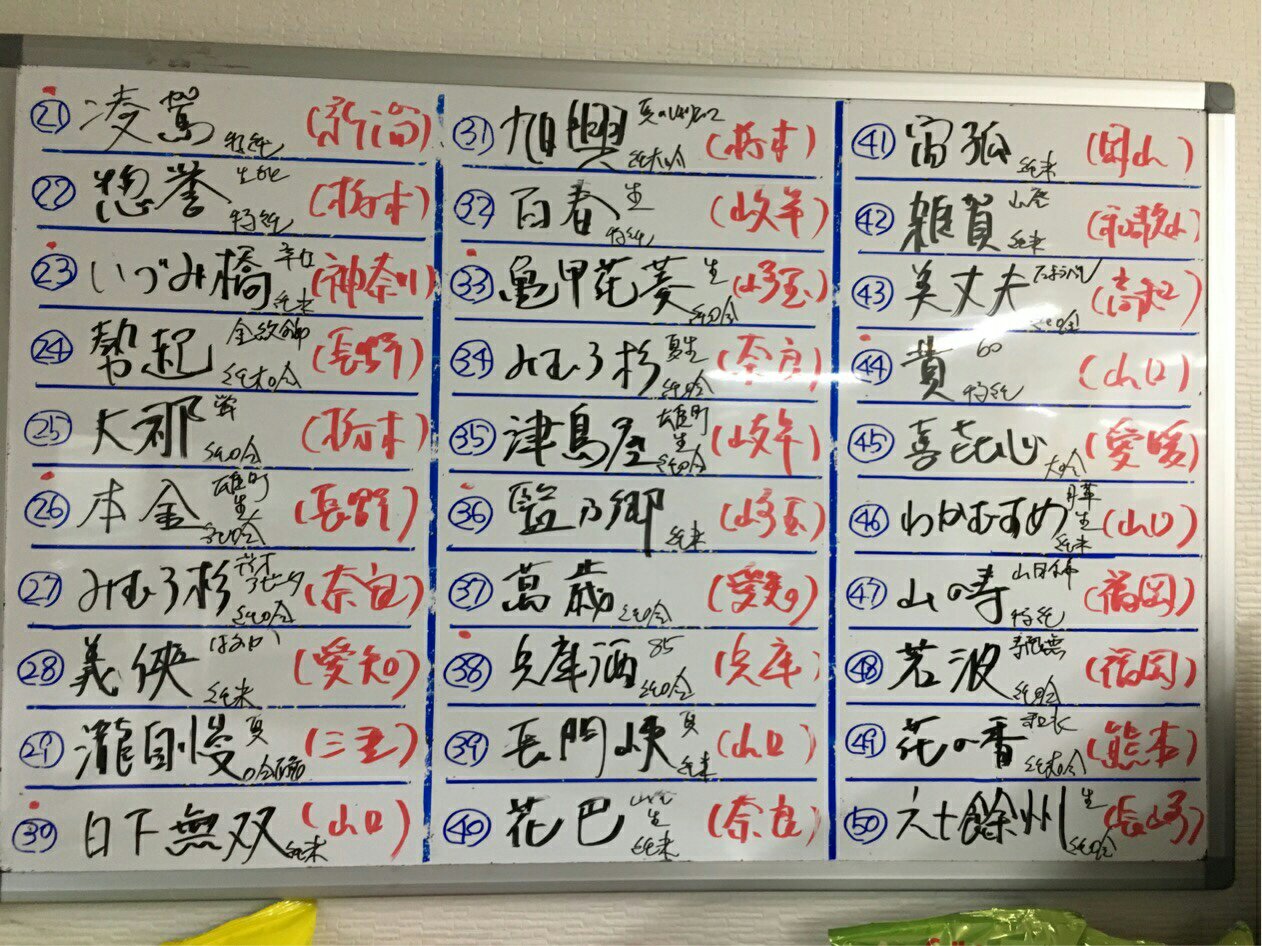 ㉑ 凌駕 特純 (新潟)
㉒ 惣誉 生酛 特純 (栃木)
㉓ いづみ橋 辛口 純米 (神奈川)
㉔ 勢起 金紋錦 純大吟 (長野)
㉕ 大那 純吟 (栃木)
㉖ 本金 雄町 生 純吟 (長野)
㉗ みむろ杉 純吟 (奈良)
㉘ 義侠 はるか 純米 (愛知)
㉙ 瀧自慢 夏 (三重)
㉚ 日下無双 純米 (山口)
㉛ 旭興 純大吟 (栃木)
㉜ 百春 生 特純 (岐阜)
㉝ 亀甲花菱 生 純吟 (埼玉)
㉞ みむろ杉 夏生 純吟 (奈良)
㉟ 津島屋 雄町 生 純吟 (岐阜)
㊱ 監乃郷 純米 (埼玉)
㊲ 萬歳 純吟 (愛知)
㊳ 兵庫酒 85 純吟 (兵庫)
㊴ 長門峡 夏 純米 (山口)
㊵ 花巴 山廃 生 純米 (奈良)
㊶ 宙狐 純米 (岡山)
㊷ 雑賀 山廃 純米 (和歌山)
㊸ 美丈夫 純吟 (高知)
㊹ 貴 60 特純 (山口)
㊺ 喜多心 大吟 (愛媛)
㊻ わかむすめ 月草 生 純米 (山口)
㊼ 山の寿 山田錦 特純 (福岡)
㊽ 若波 純吟 (福岡)
㊾ 花の香 和水 純大吟 (熊本)
㊿ 六十餘州 生 純吟 (長崎)